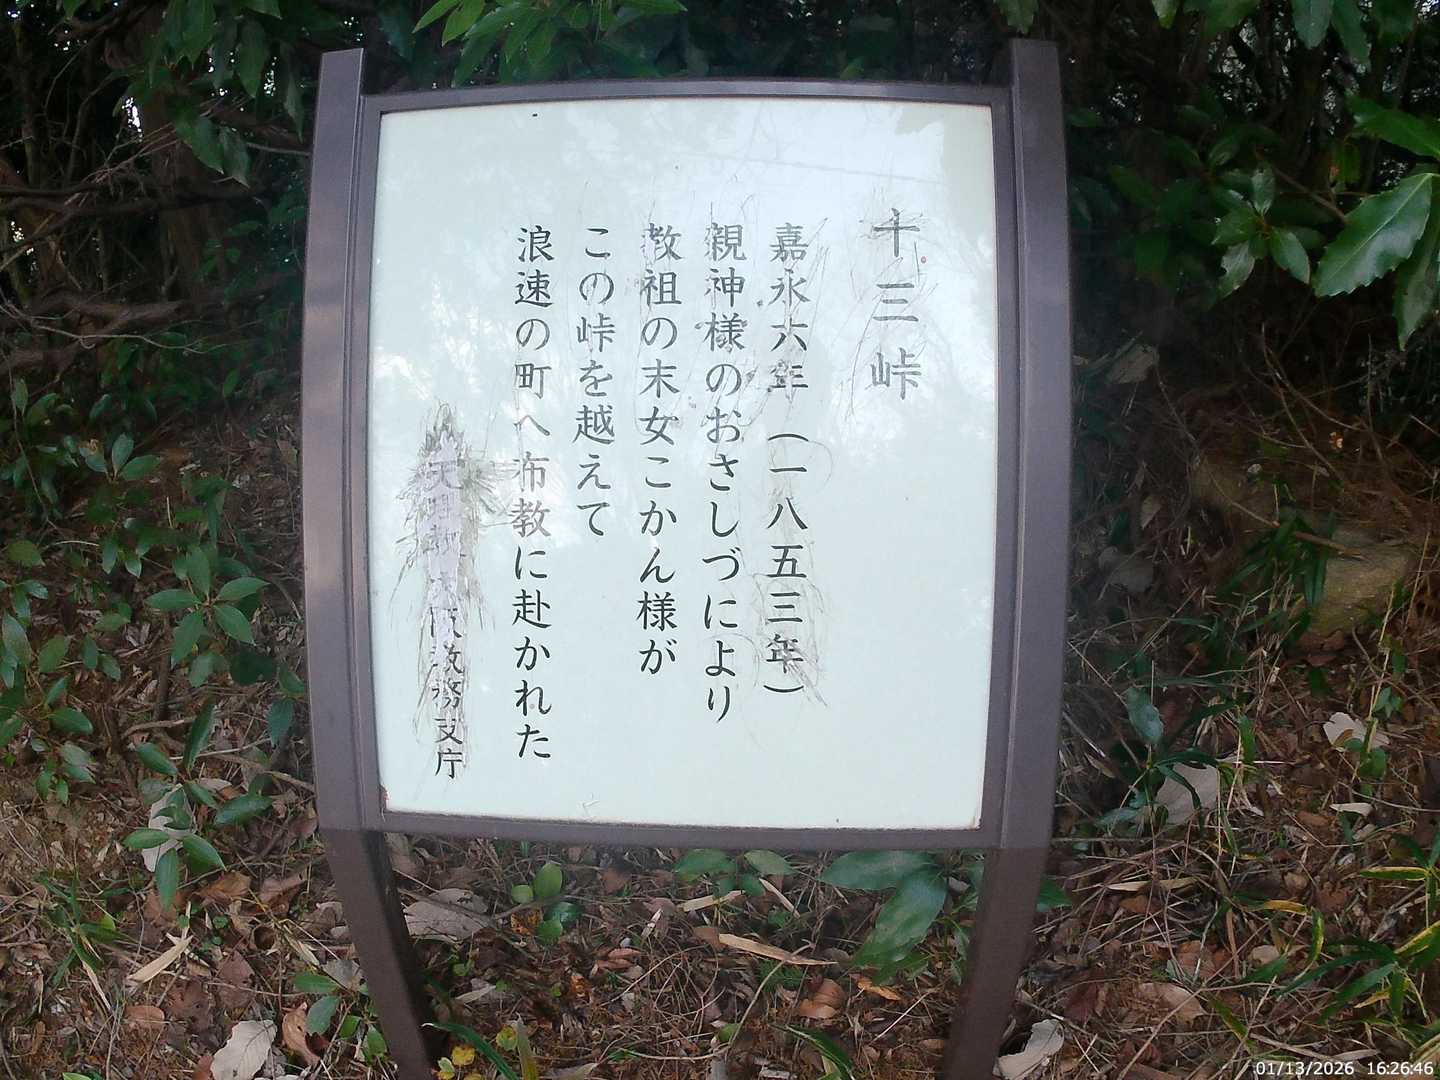 十三峠
嘉永六年（一八五三年）
親神様のおさしづにより
教祖の末女こかん様が
この峠を越えて
浪速の町へ布教に赴かれた
天理教大阪教務支庁
01/13/2026 16:26:46